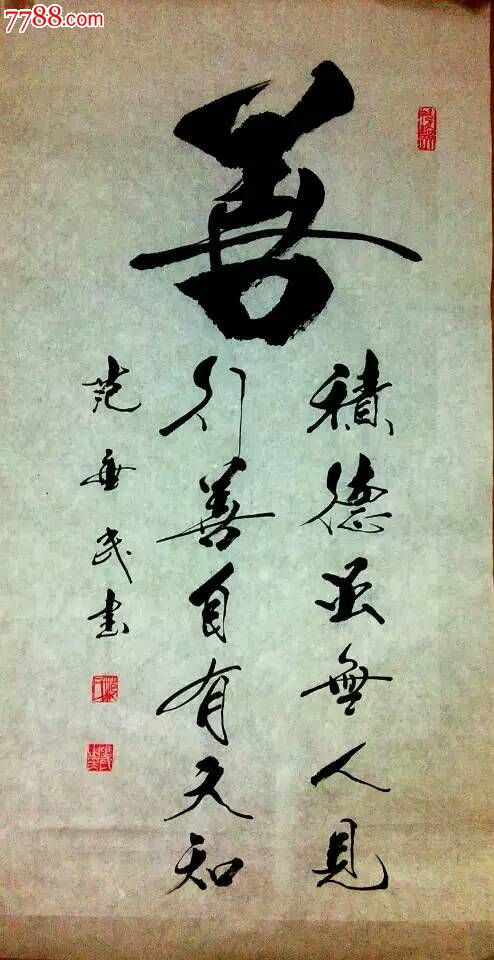 7788.com
善
積德虽無人見
行善自有天知
范 民书